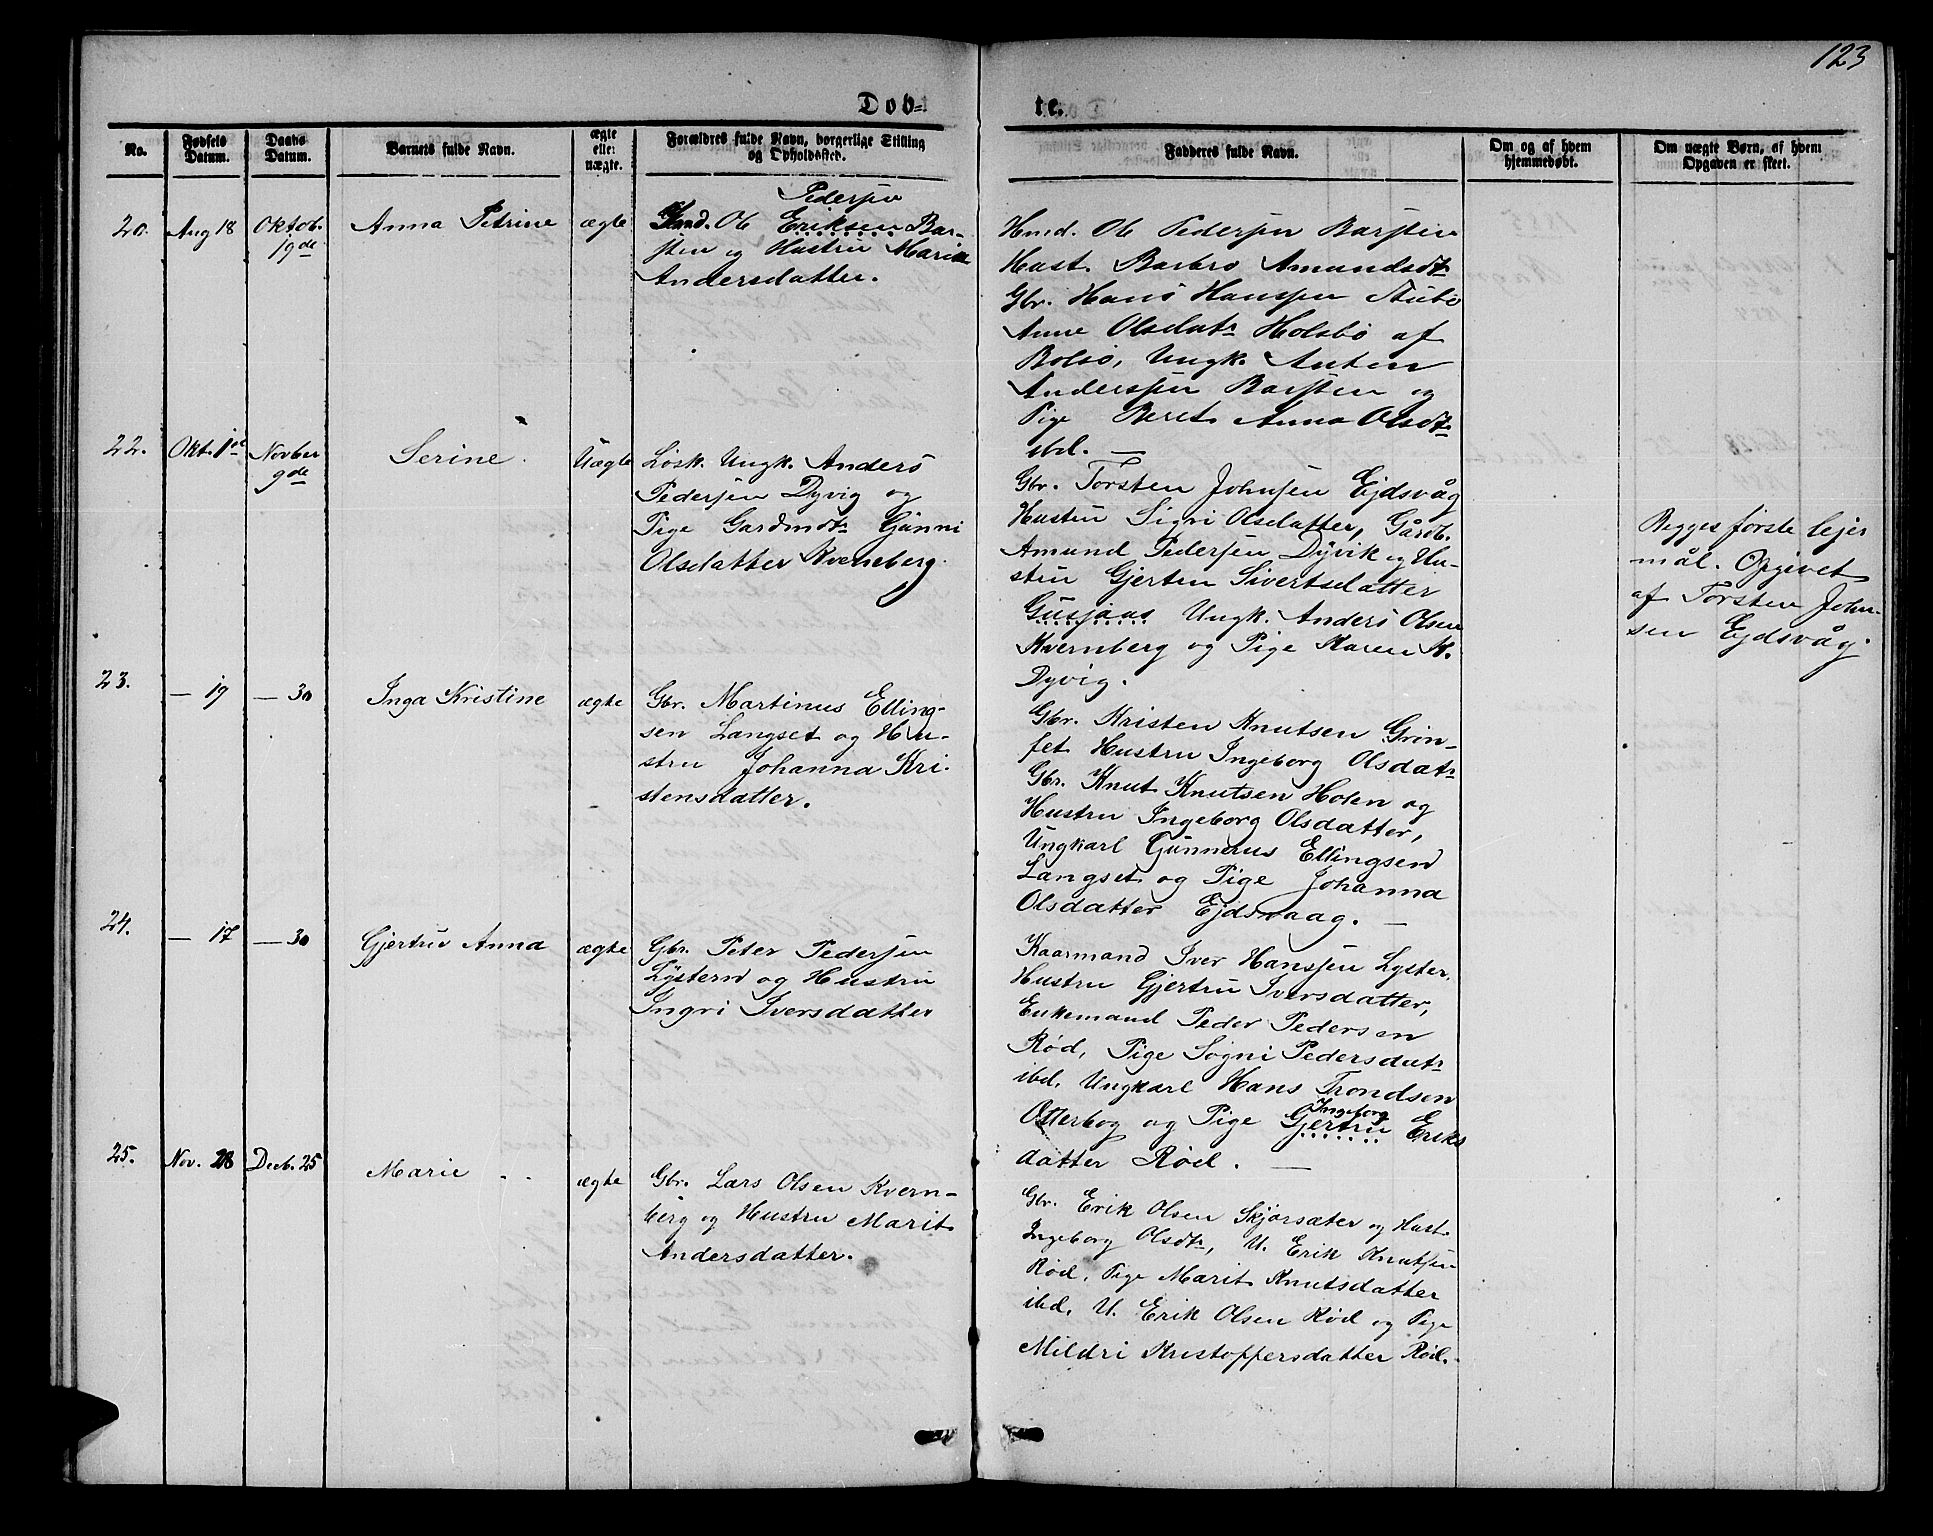 123
Døb-
te.
No.
Fødsels Datum.
Daabs Datum.
Barnets fulde Navn.
ægte eller uægte.
Forældres fulde Navn, borgerlige Stilling
og Opholdssted.
Fadderes fulde Navn.
Om og af hvem
hjemmedøbt.
Om uægte Børn, af hvem
Opgaven er skeet.
20. Aug 18 Oktob. 19de Anna Petrine ægte
Pedersen
Hmd. Ole Eriksen Bar-
sten og Hustru Marit
Andersdatter.
Hmd. Ole Pedersen Barsten
Hust. Barbro Amundsdtr
Gbr. Hans Hanssen Stubø
Anne Olsdatr Holsbø af
Bolsø, Ungk. Anten
Anderssen Barsten og
Pige Beret Anna Olsdtr
ibd. —
22. Okt. 1ste Novber 9de Serine. Uægte
Løsk. Ungk. Anders
Pedersen Dyvig og
Pige Gardmdtr Gunni
Olsdatter Kverneberg.
Gbr. Torsten Johnsen Ejdsvåg
Hustru Sigri Olsdatter, Gårdb.
Amund Pedersen Dyvik og Hu-
stru Gjerten Sivertsdatter
Gusjaas Ungk. Anders Olsen
Kvernberg og Pige Karen K.
Dyvig.
Begges første lejer
mål. Opgivet
af Torsten John-
sen Ejdsvåg.
23. — 19 — 30 Inga Kristine ægte
Gbr. Martinus Elling-
sen Langset og Hu-
stru Johanna Kri-
stensdatter.
Gbr. Kristen Knutsen Grin-
set Hustru Ingeborg Olsdatr
Gbr. Knut Knutsen Holen og
Hustru Ingeborg Olsdatter,
Ungkarl Gunnerus Ellingsen
Langset og Pige Johanna
Olsdatter Ejdsvaag. —
24. — 17 — 30 Gjertru Anna ægte
Gbr. Peter Pedersen
Lÿstern og Hustru
Ingri Iversdatter
Kaarmand Iver Hanssen Lyster.
Hustru Gjertru Iversdatter,
Enkemand Peder Pedersen
Rød, Pige Sogni Pedersdatr
ibd, Ungkarl Hans Trondsen
Ingeborg
Otterbog og Pige Gjertru Eriks
datter Rød. —
25. Nov. 28 Decb. 25 Marie ægte
Gbr. Lars Olsen Kvern-
berg og Hustru Marit
Andersdatter.
Gbr. Erik Olsen Skjørsæter og Hust.
Ingeborg Olsdtr, U. Erik Knutsen
Rød, Pige Marit Knutsdatter
ibd, U. Erik Olsen Rød og Pige
Mildri Kristoffersdatter Rød.